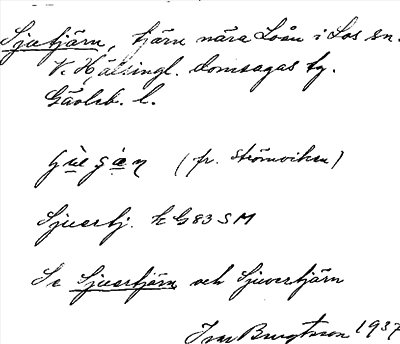 Sjutjärn, tjärn nära Loån i Los sn.
V. Hälsingl. domsagas tg.
Gävleb. l.
(fr. Strömviken)
Sjuertj. K G83 SM
Se Sjuertjärn och Sjuvertjärn
Ivar Bengtsson 1937